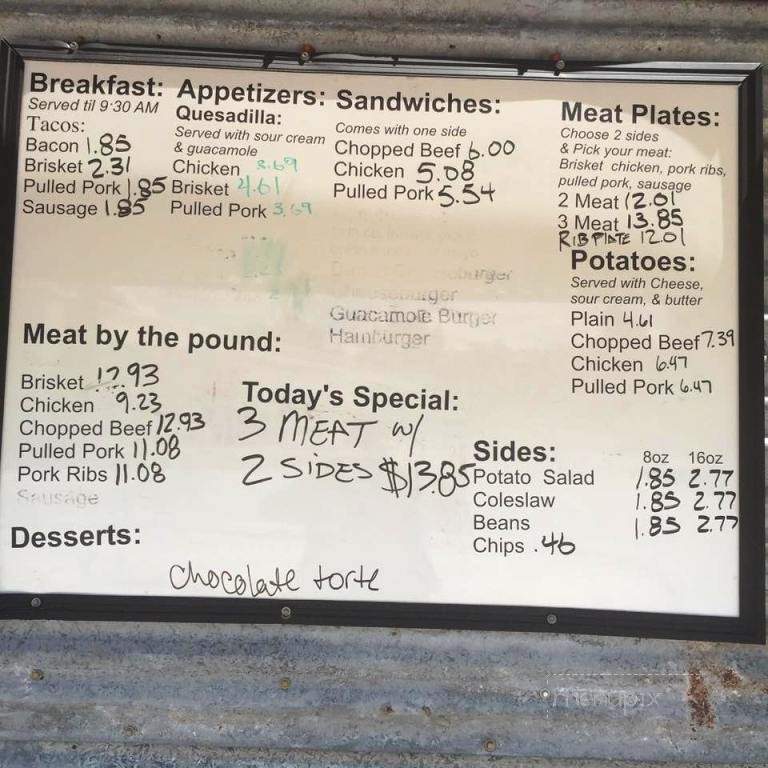 Breakfast:
Served til 9:30 AM
Tacos:
Bacon 1.85
Brisket 2.31
Pulled Pork 1.85
Sausage 1.85
Appetizers:
Quesadilla:
Served with sour cream
& guacamole
Chicken
Brisket 4.61
Pulled Pork 3.69
Sandwiches:
Comes with one side
Chopped Beef 6.00
Chicken 5.08
Pulled Pork 5.54
Guacamole Burger
Hamburger
Meat Plates:
Choose 2 sides
& Pick your meat:
Brisket chicken, pork ribs,
pulled pork, sausage
2 Meat 12.01
3 Meat 13.85
RIB PLATE 12.01
Potatoes:
Served with Cheese,
sour cream, & butter
Plain 4.61
Chopped Beef 7.39
Chicken 6.47
Pulled Pork 6.47
Meat by the pound:
Brisket 12.93
Chicken 9.23
Chopped Beef 12.93
Pulled Pork 11.08
Pork Ribs 11.08
Sausage
Today's Special:
3 MEAT w/
2 SIDES $13.85
Sides:
8oz 16oz
Potato Salad 1.85 2.77
Coleslaw 1.85 2.77
Beans 1.85 2.77
Chips .46
Desserts:
chocolate torte
menupix